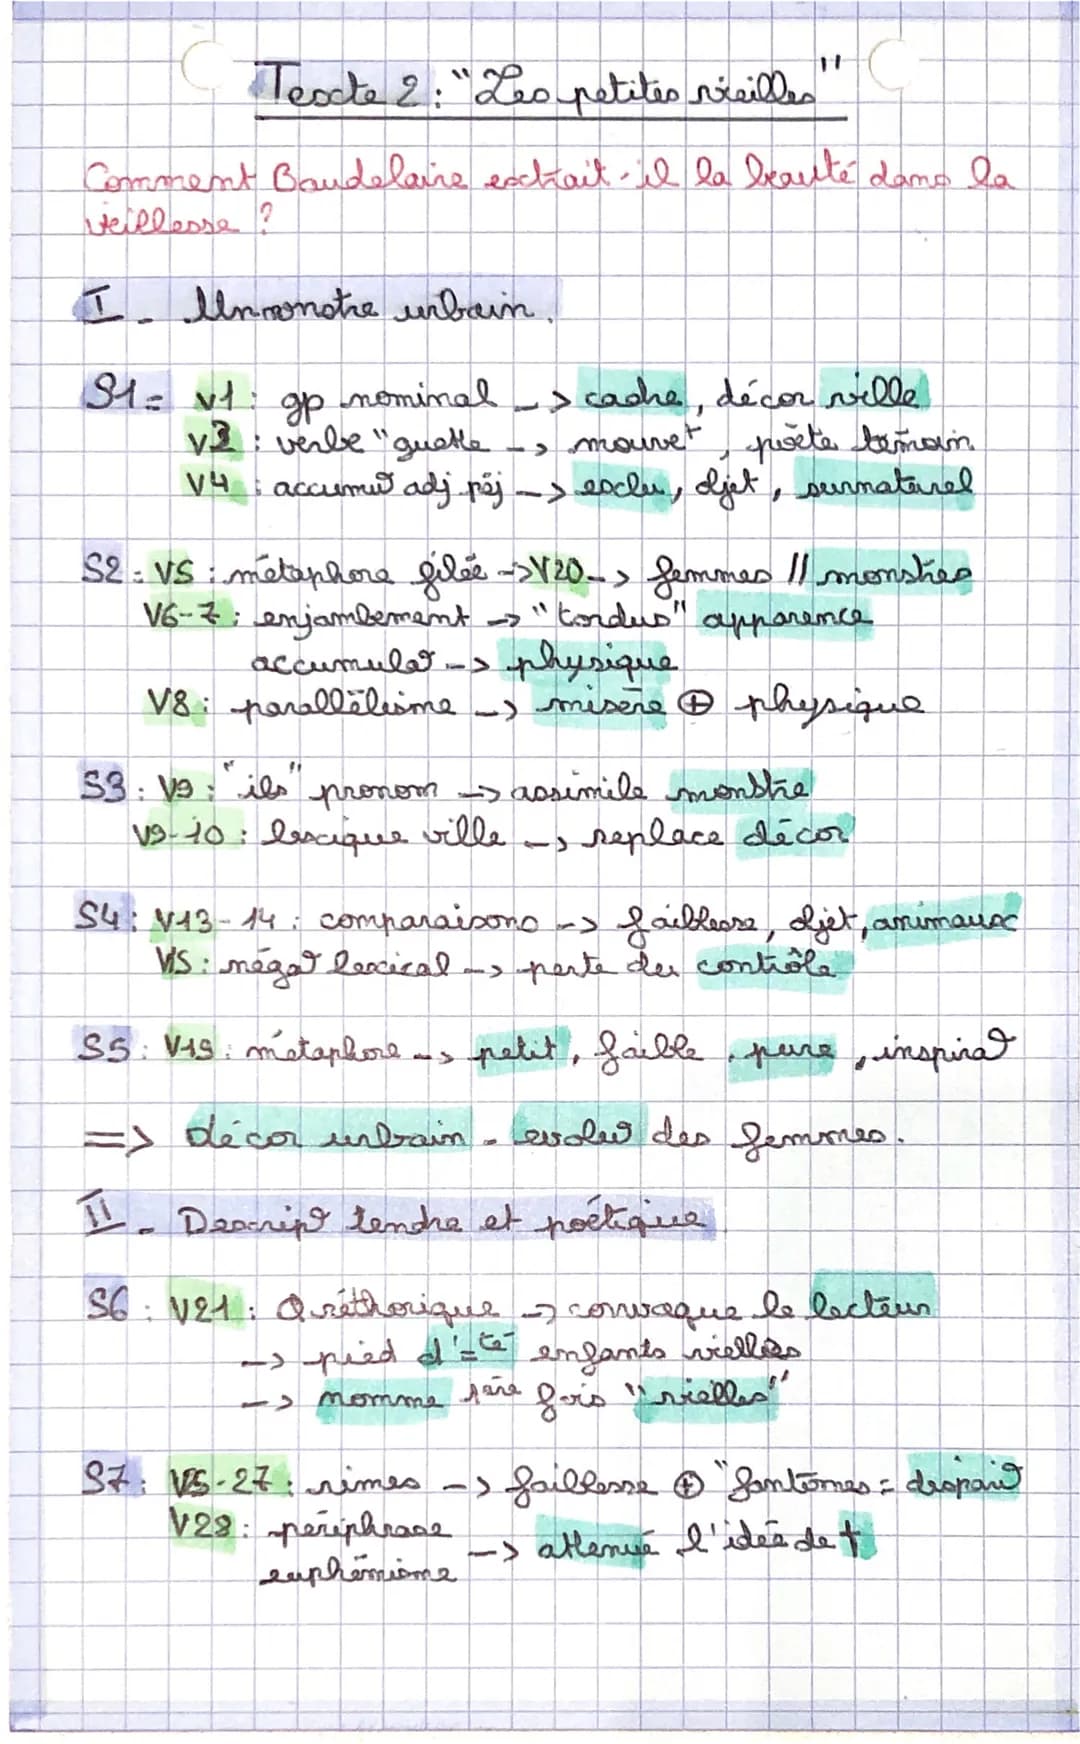 Texte 2 : "Les petites vieilles"
Comment Baudelaire extrait-il la beauté dans la
vieillesse ?
I - Un monstre urbain.
S1 = V1 : gp nominal -> cadre, décor ville
V3 : verbe "guette -> mouvet, poète témoin
V4 : accumul° adj péj -> exclu, objet, surnaturel
S2 : V5 : métaphore filée -> V20 -> femmes // monstres
V6-7 : enjambement -> "tordus" apparence
accumulat° -> physique
V8 : parallélisme -> misère ⊕ physique
S3 : V9 : "ils" pronom -> assimile monstre
V9-10 : lexique ville -> replace décor
S4 : V13-14 : comparaisons -> faiblesse, objet, animaux
V15 : négat° lexical -> perte du contrôle
S5 : V19 : métaphore -> petit, faible, pure, inspirat°
=> décor urbain - évolut° des femmes.
II - Descript° tendre et poétique
S6 : V21 : Q réthorique -> convoque le lecteur
-> pied d'=té enfants vielles
-> nomme 1ère fois "vielles"
S7 : V25-27 : rimes -> faiblesse ⊕ "fantômes = disparit°
V28 : périphrase
euphémisme -> atténué l'idée de †